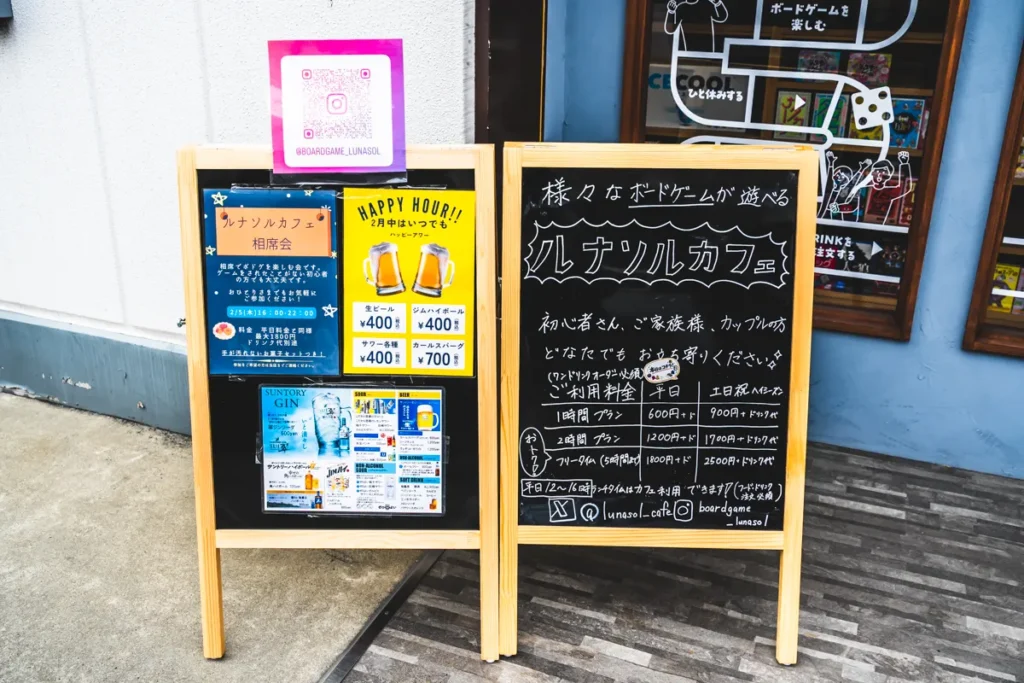 @BOARDGAME_LUNASOL
ルナソルカフェ
相席会
相席でボドゲを楽しむ会です。
ゲームをされたことがない初心者
の方でも大丈夫です。
おひとりさまでもお気軽に
ご参加ください！
2/5(木)16:00-22:00
料金 平日料金と同様
最大1800円
ドリンク代別途
手が汚れないお菓子セットつき！
HAPPY HOUR!!
2月中はいつでも
ハッピーアワー
生ビール
¥400
ジムハイボール
¥400
サワー各種
¥400
カールスバーグ
¥700
SUNTORY
GIN
サントリーハイボール
JIM BEAM
BEER
NON-ALCOHOL
SOFT DRINK
様々なボードゲームが遊べる
ルナソルカフェ
初心者さん、ご家族様、カップルの方
どなたでも お立ち寄りください
(ワンドリンクオーダー必須)
ご利用料金 平日 土日祝ハイシーズン
1時間プラン 600円+ド 900円+ドリンク代
2時間プラン 1200円+ド 1700円+ドリンク代
おトク
フリータイム(5時間まで) 1800円+ド 2500円+ドリンク代
平日12〜16時ランチタイムはカフェ利用できます!(フード・ドリンク
注文必須)
lunasol_cafe boardgame
_lunasol
ボードゲームを
楽しむ
ICECOOL
ひと休みする
DRINKを
注文する